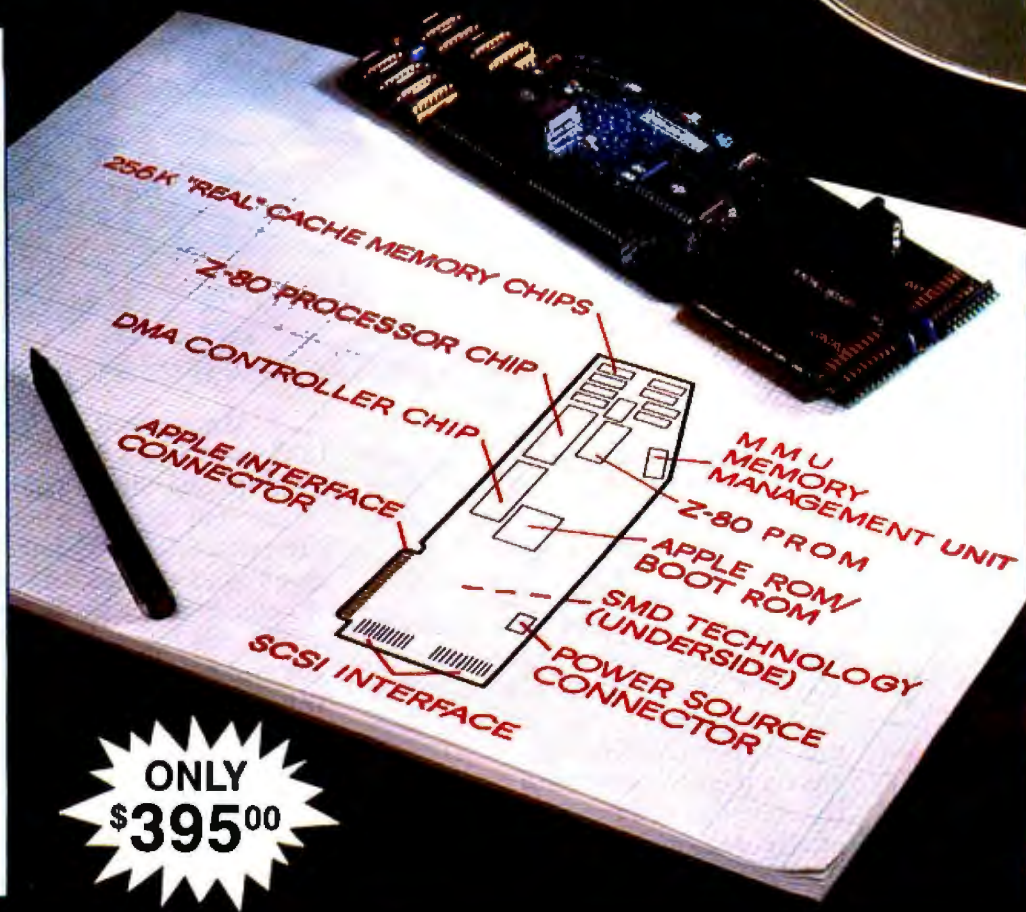 256K "REAL" CACHE MEMORY CHIPS
Z-80 PROCESSOR CHIP
DMA CONTROLLER CHIP
APPLE INTERFACE
CONNECTOR
M M U
MEMORY
MANAGEMENT UNIT
Z-80 P R O M
APPLE ROM/
BOOT ROM
SMD TECHNOLOGY
(UNDERSIDE)
POWER SOURCE
CONNECTOR
SCSI INTERFACE
ONLY
$39500